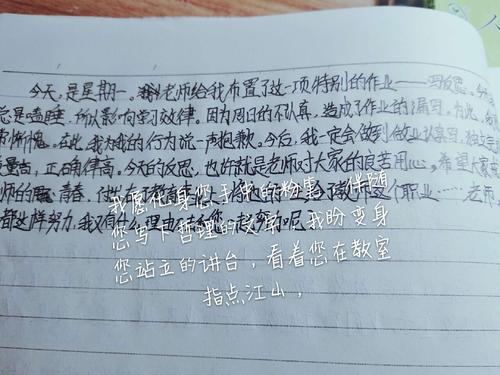 今天,是星期一。我老师给我布置了这一项特别的作业——写反思。
总是嗑睡,所以影响学习效律。因为周日的不认真,造成了作业的漏写。为此,
惭愧。在此,我为我的行为说一声抱歉。今后,我一定会做到做业认真写,独立完
量高,正确律高。今天的反思,也许就是老师对大家的良苦用心。希望大家
师的 青春,付出在了教育 老师这个职业……老师,
都这样努力,我又有什么理由不和您一起努力呢
我愿化身您手中的粉笔,伴随
您写下哲理的文字,我盼变身
您站立的讲台,看着您在教室
指点江山,